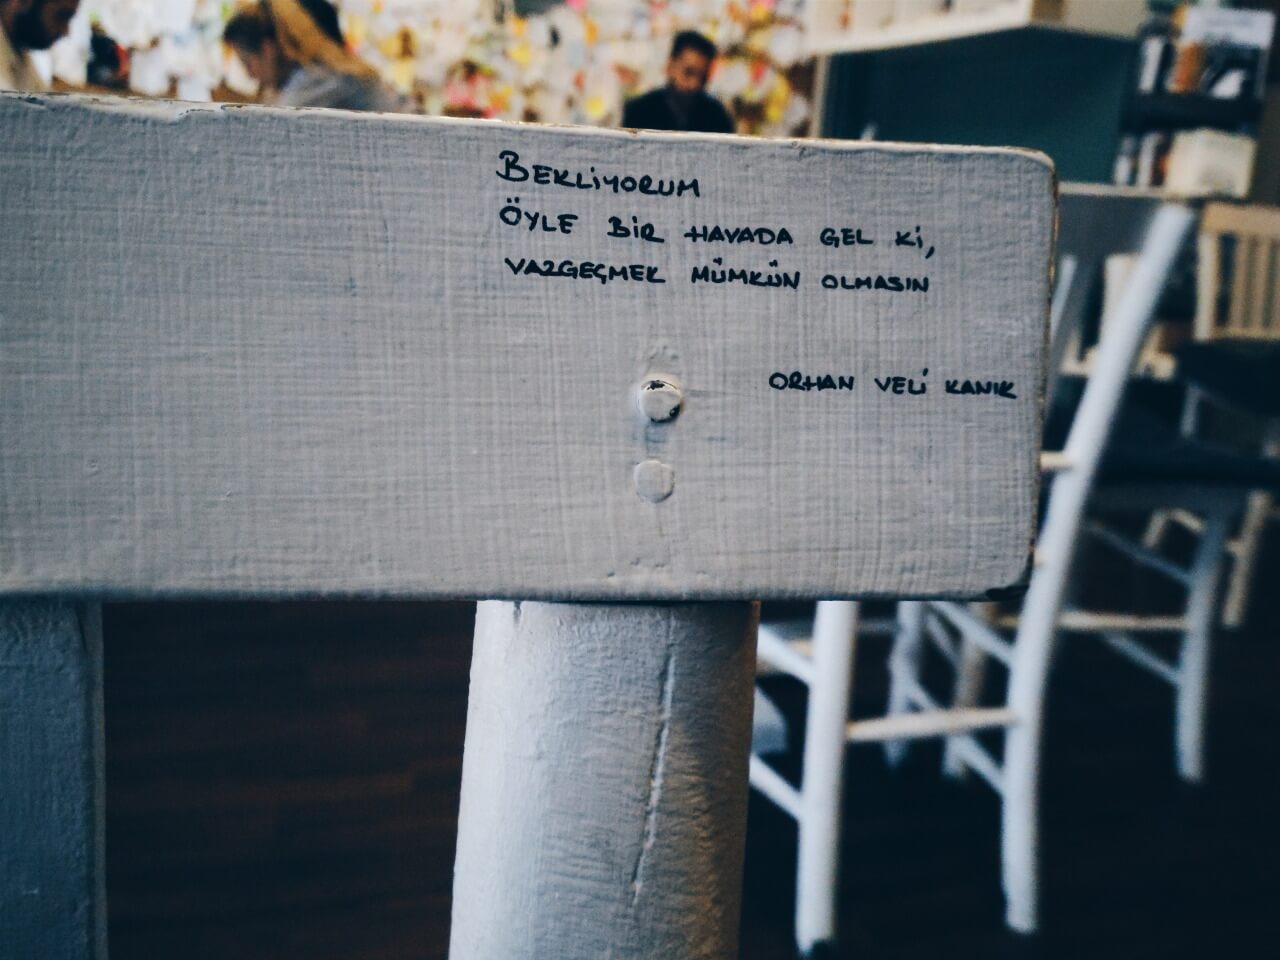 BEKLİYORUM
ÖYLE BİR HAVADA GEL Kİ,
VAZGEÇMEK MÜMKÜN OLMASIN
ORHAN VELİ KANIK